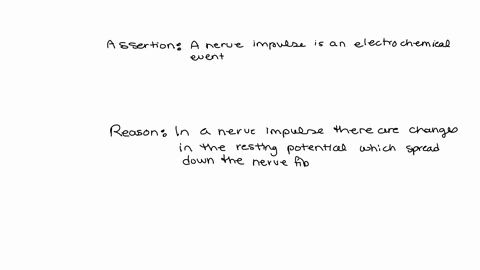 Assertion: A nerve impulse is an electrochemical
event
Reason: In a nerve impulse there are changes
in the resting potential which spread
down the nerve fib